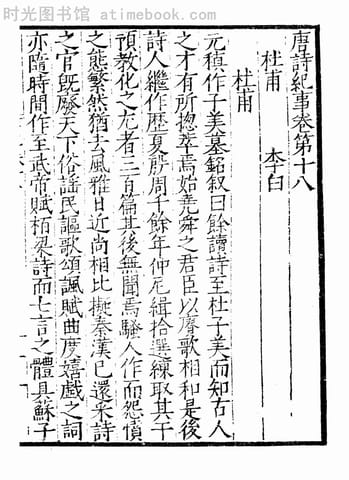 时光图书馆 - atimebook.com
唐詩紀事卷第十八
杜甫　李白
杜甫
元稹作子美墓銘叙曰餘讀詩至杜子美而知古人
之才有所揔萃焉始堯舜之君臣以賡歌相和是後
詩人繼作歷夏殷周千餘年仲尼緝拾選練取其干
預教化之尤者三百篇其後無聞焉騷人作而怨憤
之態繁然猶去風雅日近尚相比擬秦漢已還采詩
之官既廢天下俗謠民謳歌頌諷賦曲度嬉戲之詞
亦隨時間作至武帝賦栢梁詩而七言之體具蘇子